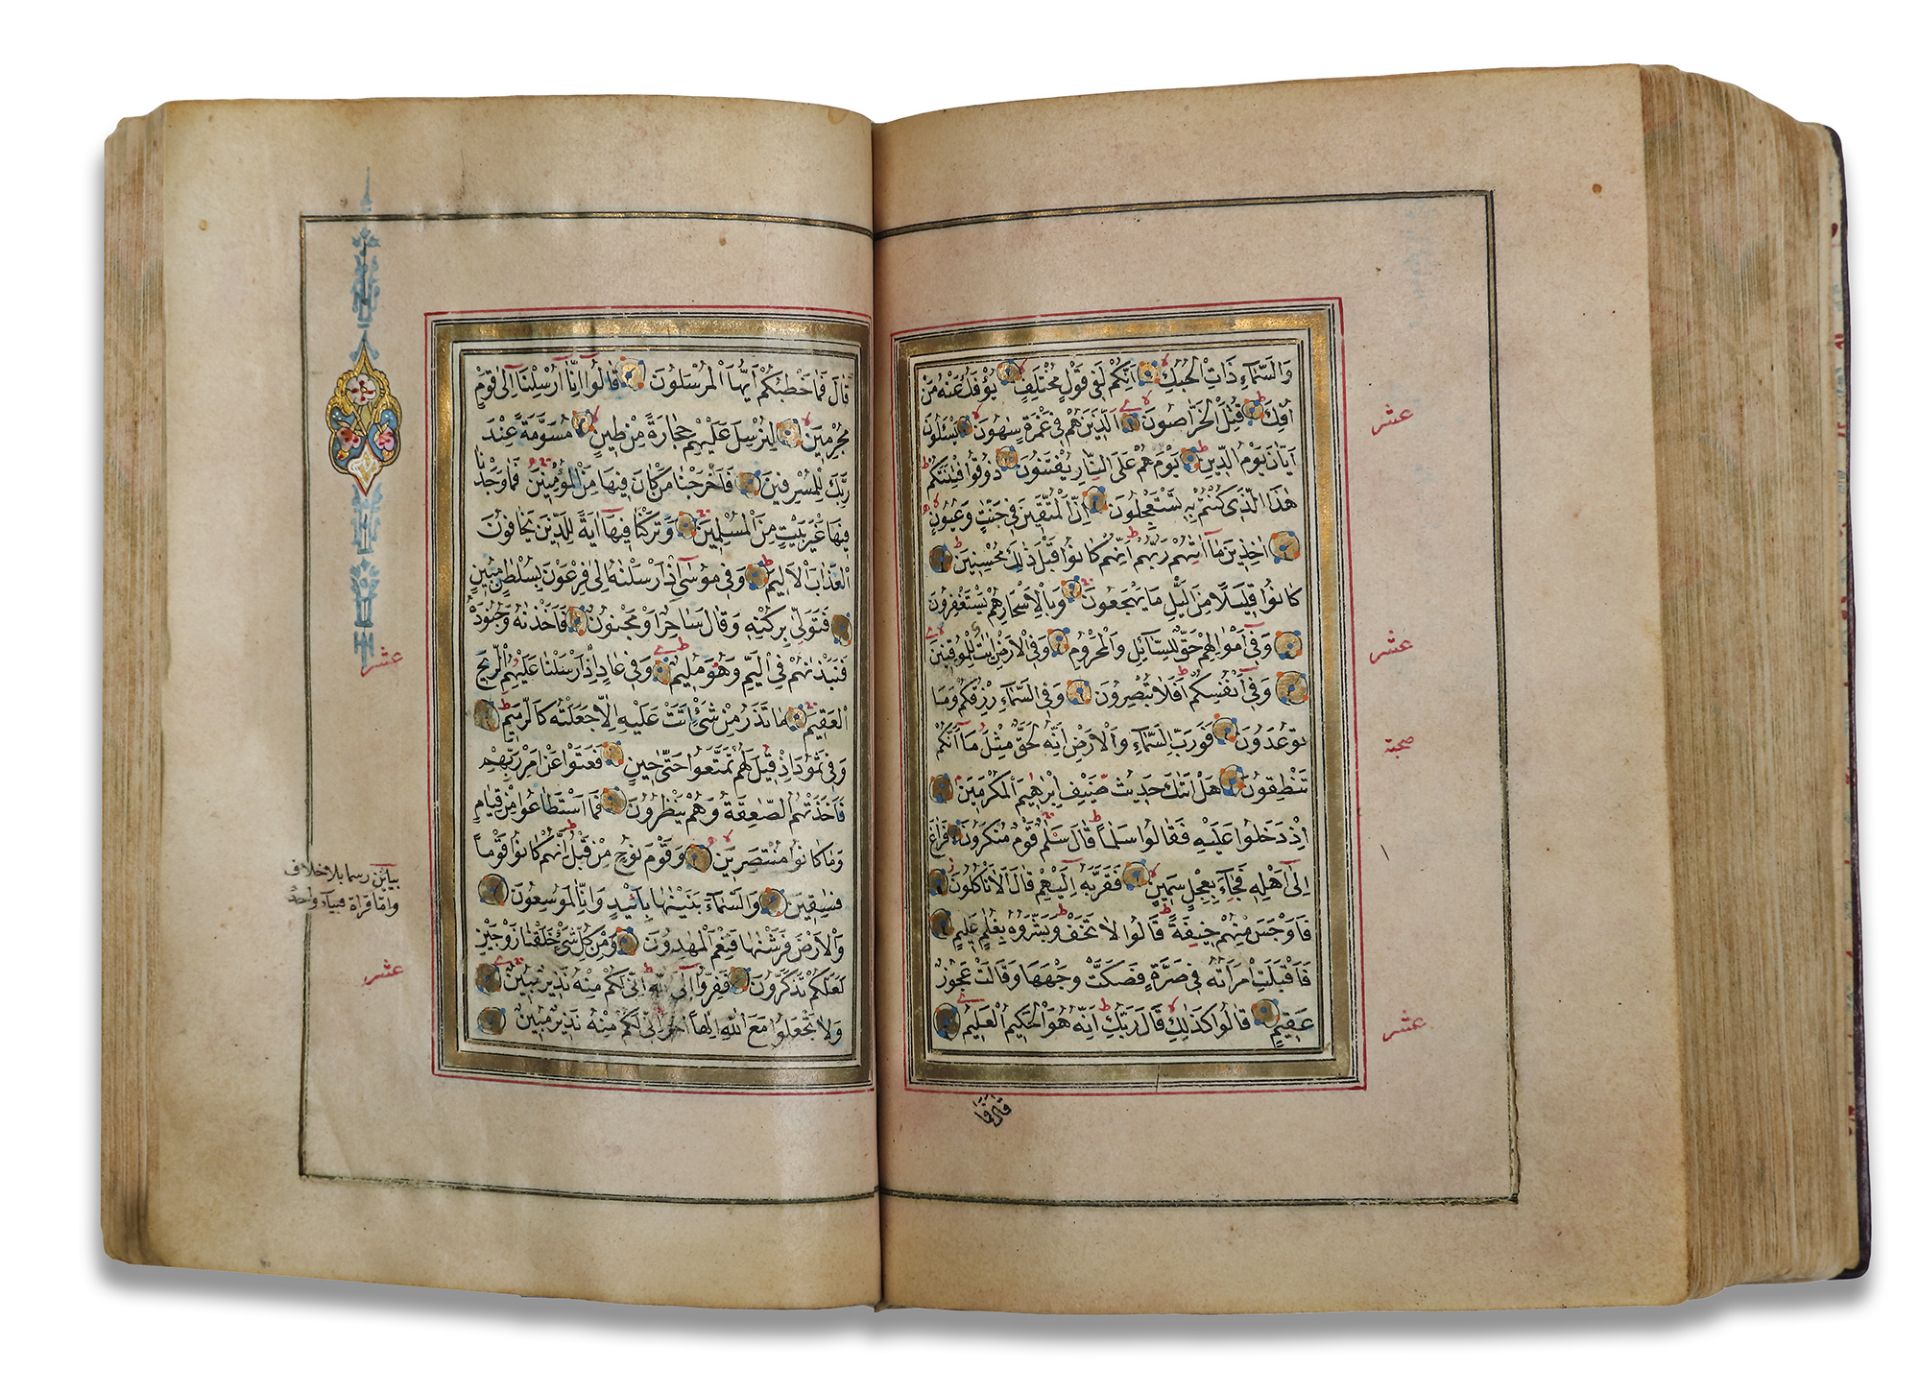 وَالسَّمَاءِ ذَاتِ الْحُبُكِ اِنَّكُمْ لَفِي قَوْلٍ مُخْتَلِفٍ يُؤْفَكُ عَنْهُ مَنْ
اُفِكَ قُتِلَ الْخَرَّاصُونَ اَلَّذِينَ هُمْ فِي غَمْرَةٍ سَاهُونَ يَسْئَلُونَ
اَيَّانَ يَوْمُ الدِّينِ يَوْمَ هُمْ عَلَى النَّارِ يُفْتَنُونَ ذُوقُوا فِتْنَتَكُمْ
هٰذَا الَّذِي كُنْتُمْ بِهِ تَسْتَعْجِلُونَ اِنَّ الْمُتَّقِينَ فِي جَنَّاتٍ وَعُيُونٍ
اٰخِذِينَ مَا اٰتٰيهُمْ رَبُّهُمْ اِنَّهُمْ كَانُوا قَبْلَ ذٰلِكَ مُحْسِنِينَ
كَانُوا قَلِيلًا مِنَ الَّيْلِ مَا يَهْجَعُونَ وَبِالْاَسْحَارِ هُمْ يَسْتَغْفِرُونَ
وَفِي اَمْوَالِهِمْ حَقٌّ لِلسَّائِلِ وَالْمَحْرُومِ وَفِي الْاَرْضِ اٰيَاتٌ لِلْمُوقِنِينَ
وَفِي اَنْفُسِكُمْ اَفَلَا تُبْصِرُونَ وَفِي السَّمَاءِ رِزْقُكُمْ وَمَا
تُوعَدُونَ فَوَرَبِّ السَّمَاءِ وَالْاَرْضِ اِنَّهُ لَحَقٌّ مِثْلَ مَا اَنَّكُمْ
تَنْطِقُونَ هَلْ اَتٰيكَ حَدِيثُ ضَيْفِ اِبْرٰهِيمَ الْمُكْرَمِينَ
اِذْ دَخَلُوا عَلَيْهِ فَقَالُوا سَلَامًا قَالَ سَلَامٌ قَوْمٌ مُنْكَرُونَ فَرَاغَ
اِلٰى اَهْلِهِ فَجَاءَ بِعِجْلٍ سَمِينٍ فَقَرَّبَهُ اِلَيْهِمْ قَالَ اَلَا تَأْكُلُونَ
فَاَوْجَسَ مِنْهُمْ خِيفَةً قَالُوا لَا تَخَفْ وَبَشَّرُوهُ بِغُلَامٍ عَلِيمٍ
فَاَقْبَلَتِ امْرَاَتُهُ فِي صَرَّةٍ فَصَكَّتْ وَجْهَهَا وَقَالَتْ عَجُوزٌ
عَقِيمٌ قَالُوا كَذٰلِكِ قَالَ رَبُّكِ اِنَّهُ هُوَ الْحَكِيمُ الْعَلِيمُ
عشر
عشر
عشر
قَالَ فَمَا خَطْبُكُمْ اَيُّهَا الْمُرْسَلُونَ قَالُوا اِنَّا اُرْسِلْنَا اِلٰى قَوْمٍ
مُجْرِمِينَ لِنُرْسِلَ عَلَيْهِمْ حِجَارَةً مِنْ طِينٍ مُسَوَّمَةً عِنْدَ
رَبِّكَ لِلْمُسْرِفِينَ فَاَخْرَجْنَا مَنْ كَانَ فِيهَا مِنَ الْمُؤْمِنِينَ فَمَا وَجَدْنَا
فِيهَا غَيْرَ بَيْتٍ مِنَ الْمُسْلِمِينَ وَتَرَكْنَا فِيهَا اٰيَةً لِلَّذِينَ يَخَافُونَ
الْعَذَابَ الْاَلِيمَ وَفِي مُوسٰى اِذْ اَرْسَلْنَاهُ اِلٰى فِرْعَوْنَ بِسُلْطَانٍ مُبِينٍ
فَتَوَلّٰى بِرُكْنِهِ وَقَالَ سَاحِرٌ اَوْ مَجْنُونٌ فَاَخَذْنَاهُ وَجُنُودَهُ
فَنَبَذْنَاهُمْ فِي الْيَمِّ وَهُوَ مُلِيمٌ وَفِي عَادٍ اِذْ اَرْسَلْنَا عَلَيْهِمُ الرِّيحَ
الْعَقِيمَ مَا تَذَرُ مِنْ شَيْءٍ اَتَتْ عَلَيْهِ اِلَّا جَعَلَتْهُ كَالرَّمِيمِ
وَفِي ثَمُودَ اِذْ قِيلَ لَهُمْ تَمَتَّعُوا حَتّٰى حِينٍ فَعَتَوْا عَنْ اَمْرِ رَبِّهِمْ
فَاَخَذَتْهُمُ الصَّاعِقَةُ وَهُمْ يَنْظُرُونَ فَمَا اسْتَطَاعُوا مِنْ قِيَامٍ
وَمَا كَانُوا مُنْتَصِرِينَ وَقَوْمَ نُوحٍ مِنْ قَبْلُ اِنَّهُمْ كَانُوا قَوْمًا
فَاسِقِينَ وَالسَّمَاءَ بَنَيْنَاهَا بِاَيْيدٍ وَاِنَّا لَمُوسِعُونَ
وَالْاَرْضَ فَرَشْنَاهَا فَنِعْمَ الْمَاهِدُونَ وَمِنْ كُلِّ شَيْءٍ خَلَقْنَا زَوْجَيْنِ
لَعَلَّكُمْ تَذَكَّرُونَ فَفِرُّوا اِلَى اللّٰهِ اِنِّي لَكُمْ مِنْهُ نَذِيرٌ مُبِينٌ
وَلَا تَجْعَلُوا مَعَ اللّٰهِ اِلٰهًا اٰخَرَ اِنِّي لَكُمْ مِنْهُ نَذِيرٌ مُبِينٌ
عشر
بيائين رسما بلا خلاف
واما قراءة فبياء واحدة
عشر